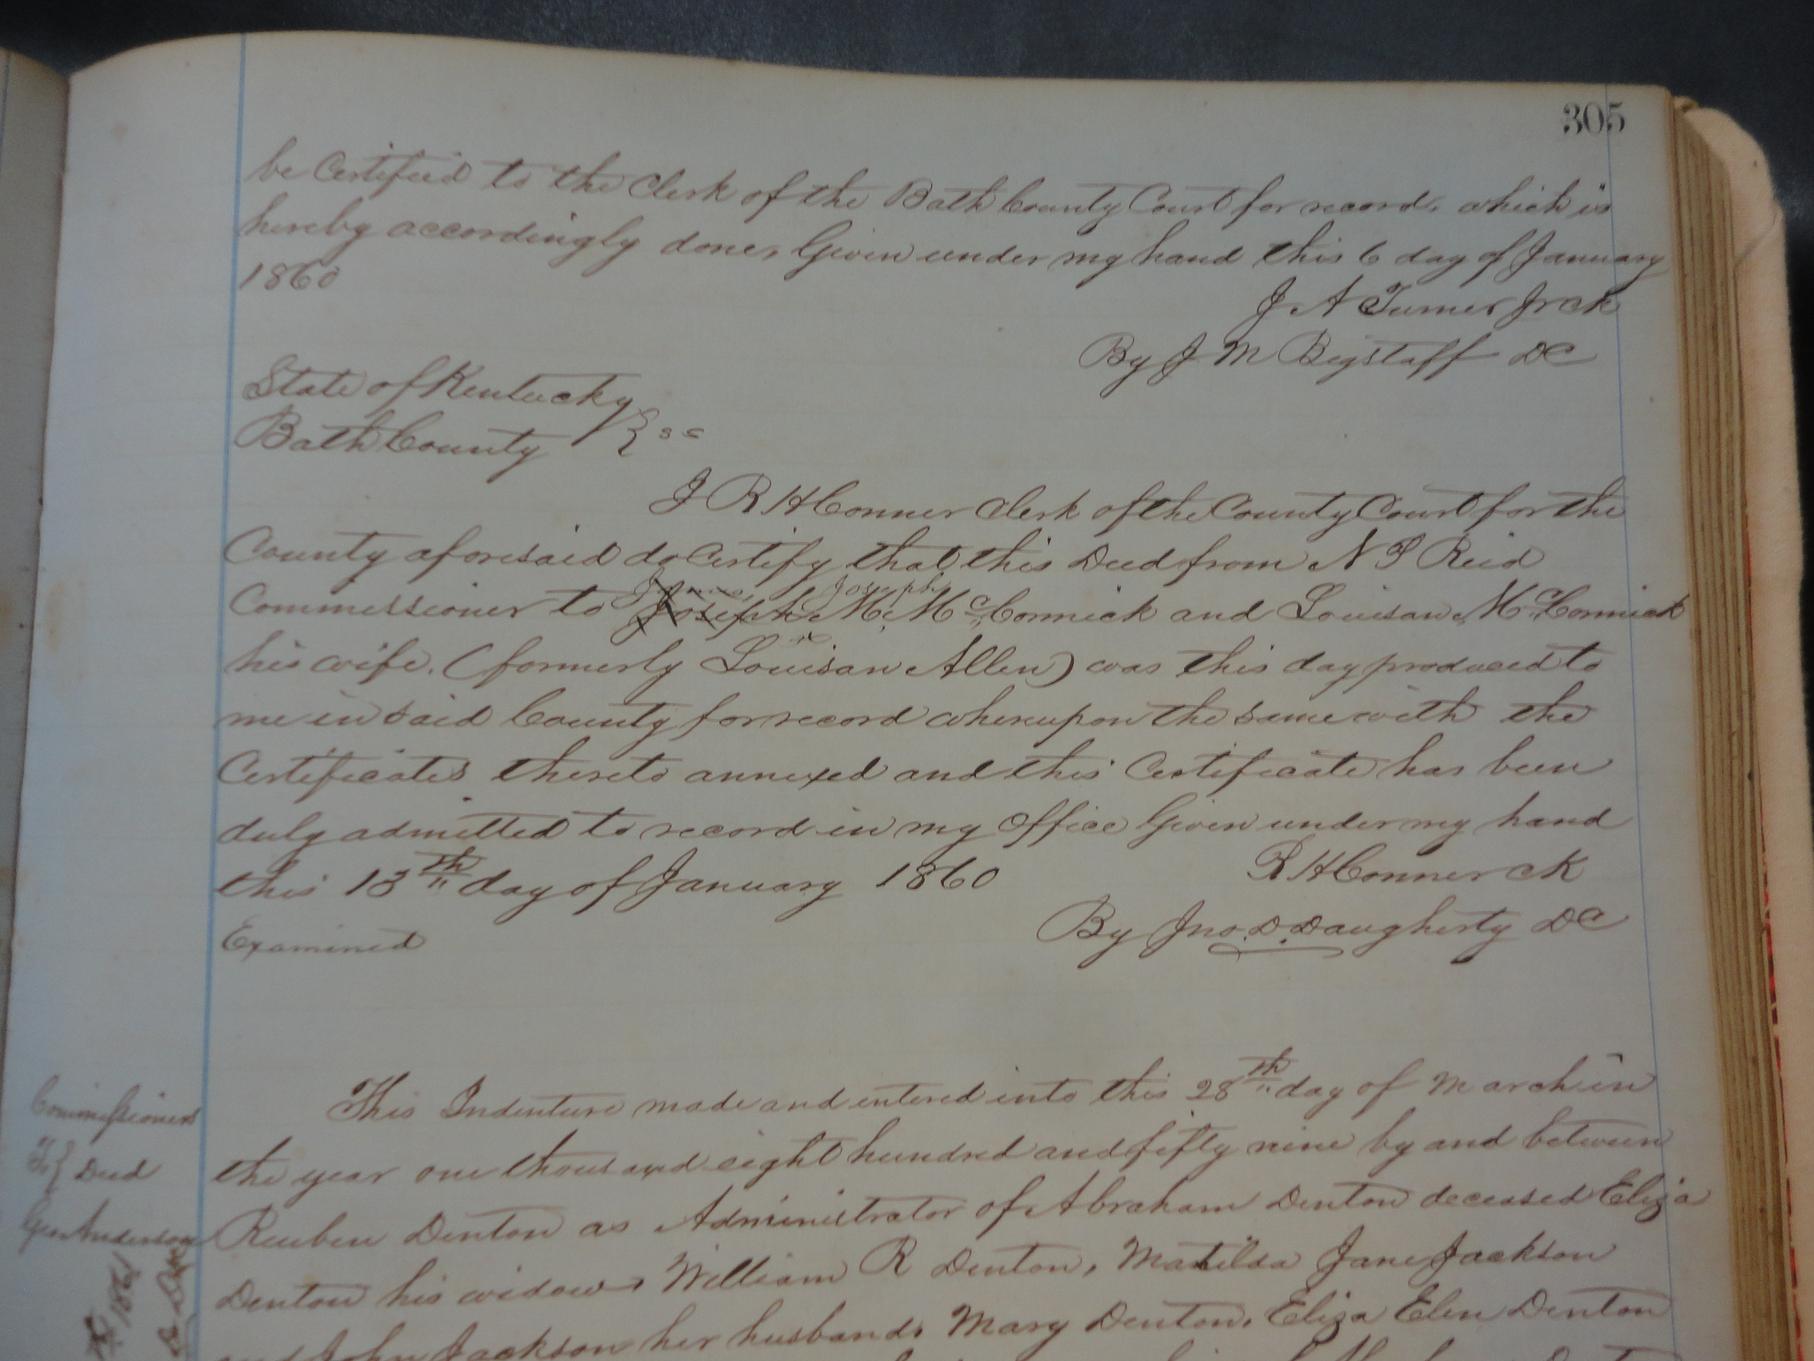 305
be Certified to the Clerk of the Bath County Court for record, which is
hereby accordingly done, Given under my hand this 6 day of January
1860
J A Turner Jr ck
By J M Bigstaff DC
State of Kentucky
Bath County } ss
I R H Conner Clerk of the County Court for the
County aforesaid do Certify that this Deed from N P Reid
James Joseph
Commissioner to Joseph M. McCormick and Louisan McCormick
his wife, (formerly Louisan Allen) was this day produced to
me in said County for record whereupon the same with the
Certificates thereto annexed and this Certificate has been
duly admitted to record in my Office Given under my hand
this 13th day of January 1860
R H Conner ck
Examined
By Jno. D. Daugherty DC
Commissioners
To } Deed
Geo Anderson
1861
This Indenture made and entered into this 28th day of March in
the year one thousand eight hundred and fifty nine by and between
Reuben Denton as Administrator of Abraham Denton deceased Eliza
Denton his widow, William R Denton, Matilda Jane Jackson
and John Jackson her husband, Mary Denton, Eliza Elen Denton